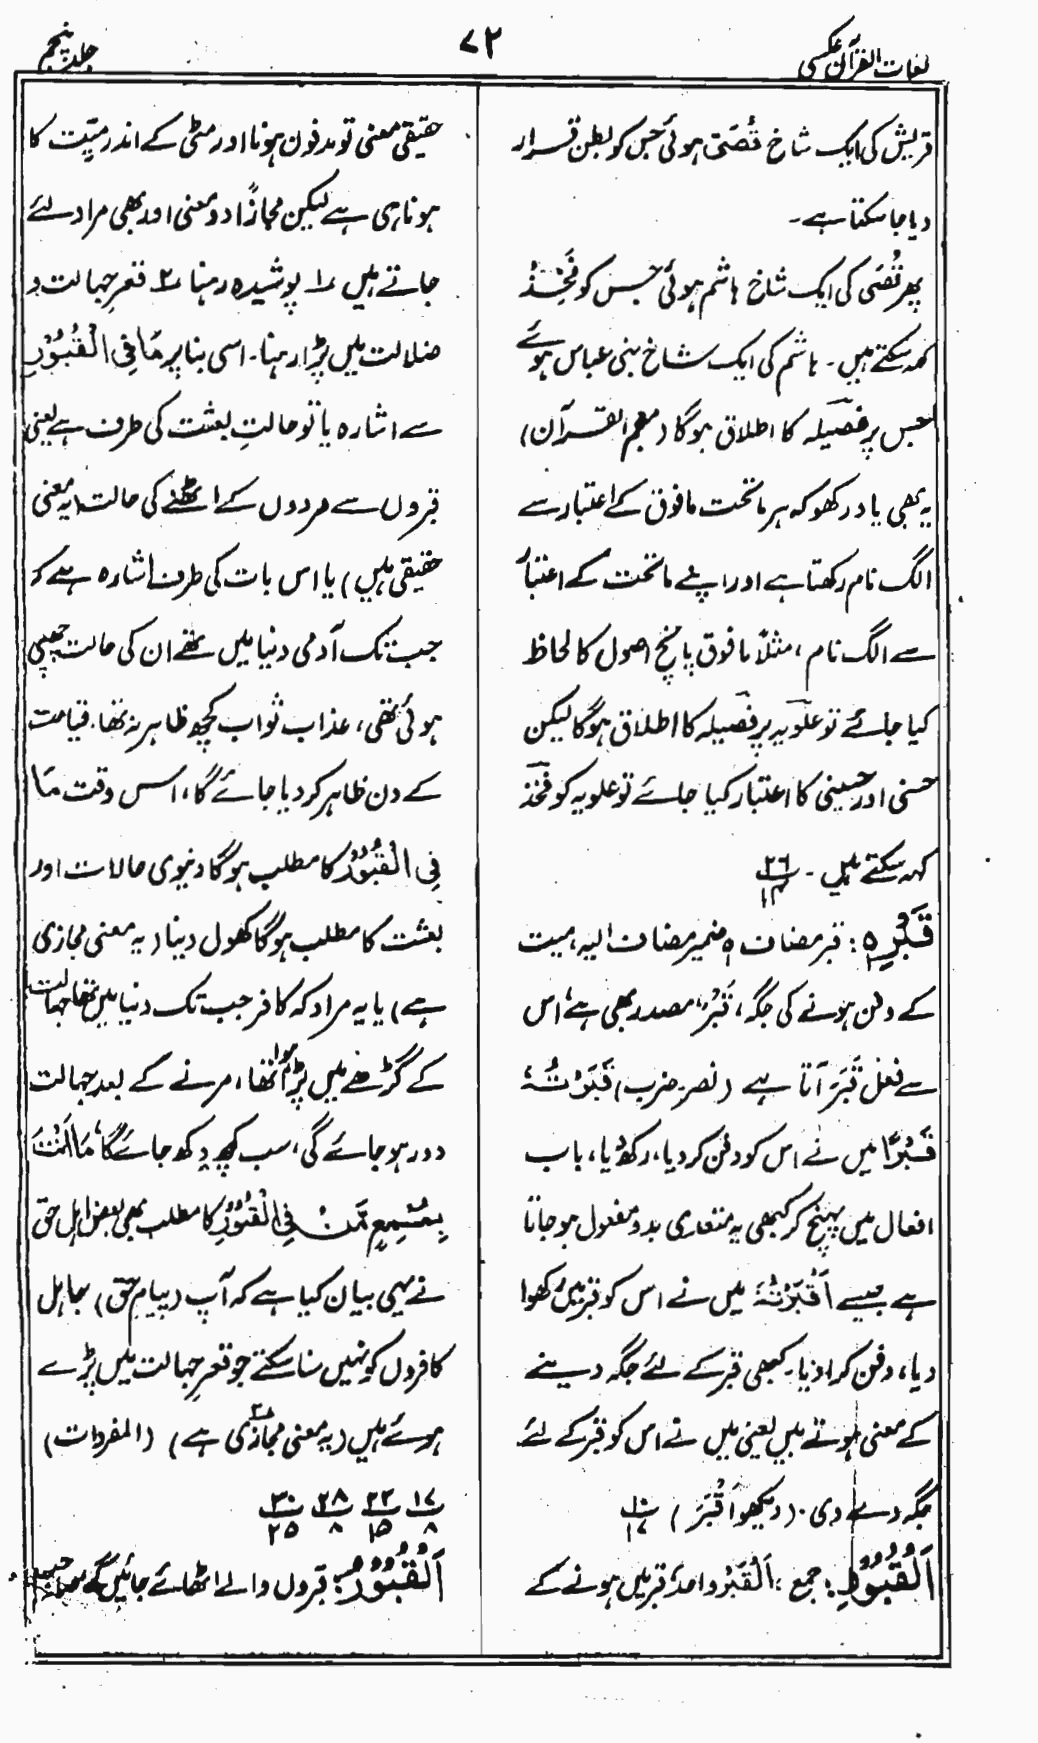 لغات القرآن عکسی
۷۲
جلد پنجم
قریش کی ایک شاخ قُصَی ہوئی جس کو بطن قرار
دیا جا سکتا ہے۔
پھر قُصَی کی ایک شاخ ہاشم ہوئی جس کو فَخِذْ
کہہ سکتے ہیں۔ ہاشم کی ایک شاخ بنی عباس ہوئے
جس پر فصیلہ کا اطلاق ہوگا (معجم القرآن)
یہ بھی یاد رکھو کہ ہر ماتحت مافوق کے اعتبار سے
الگ نام رکھتا ہے اور اپنے ماتحت کے اعتبار
سے الگ نام، مثلاً مافوق پانچ اصول کا لحاظ
کیا جائے تو علویہ پر فصیلہ کا اطلاق ہوگا لیکن
حسنی اور حسینی کا اعتبار کیا جائے تو علویہ کو فخذ
کہہ سکتے ہیں۔ ۲۶/۱۴
قَبْرِهٖ: قبر مضاف ہٖ ضمیر مضاف الیہ، میت
کے دفن ہونے کی جگہ، قَبْرٌ مصدر بھی ہے، اس
سے فعل قَبَرَ آتا ہے (نصر۔ ضرب) قَبَرْتُہٗ
قَبْرًا میں نے اس کو دفن کر دیا، رکھ دیا، باب
افعال میں پہنچ کر کبھی یہ متعدی بدو مفعول ہو جاتا
ہے جیسے اَقْبَرْتُہٗ میں نے اس کو قبر میں رکھوا
دیا، دفن کرا دیا۔ کبھی قبر کے لئے جگہ دینے
کے معنی ہوتے ہیں یعنی میں نے اس کو قبر کے لئے
جگہ دے دی۔ (دیکھو اَقْبَرَ) ۱۰/۱۷
اَلْقُبُوْرِ: جمع، اَلْقَبْرُ واحد، قبر میں ہونے کے
حقیقی معنی تو مدفون ہونا اور مٹی کے اندر میّت کا
ہونا ہی ہے لیکن مجازًا دو معنی اور بھی مراد لئے
جاتے ہیں ۱؎ پوشیدہ رہنا ۲؎ قعرِ جہالت و
ضلالت میں پڑا رہنا۔ اسی بنا پر مَا فِی الْقُبُوْرِ
سے اشارہ یا تو حالتِ بعثت کی طرف ہے یعنی
قبروں سے مردوں کے اٹھنے کی حالت (یہ معنی
حقیقی ہیں) یا اس بات کی طرف اشارہ ہے کہ
جب تک آدمی دنیا میں تھے ان کی حالت چھپی
ہوئی تھی، عذاب ثواب کچھ ظاہر نہ تھا۔ قیامت
کے دن ظاہر کر دیا جائے گا، اس وقت مَا
فِی الْقُبُوْرِ کا مطلب ہوگا دنیوی حالات اور
بعثت کا مطلب ہوگا کھول دینا (یہ معنی مجازی
ہے) یا یہ مراد کہ کافر جب تک دنیا میں تھا جہالت
کے گڑھے میں پڑا ہوا تھا، مرنے کے بعد جہالت
دور ہو جائے گی، سب کچھ دکھ جائے گا، مَا اَنْتَ
بِمُسْمِعٍ مَّنْ فِی الْقُبُوْرِ کا مطلب بھی بعض اہل حق
نے یہی بیان کیا ہے کہ آپ (پیام حق) جاہل
کافروں کو نہیں سنا سکتے جو قعرِ جہالت میں پڑے
ہوئے ہیں (یہ معنی مجازی ہے) (المفردات)
۱۷/۸ ۲۲/۱۵ ۲۸/۸ ۳۰/۲۵
اَلْقُبُوْرِ: قبروں والے اٹھائے جائیں گے